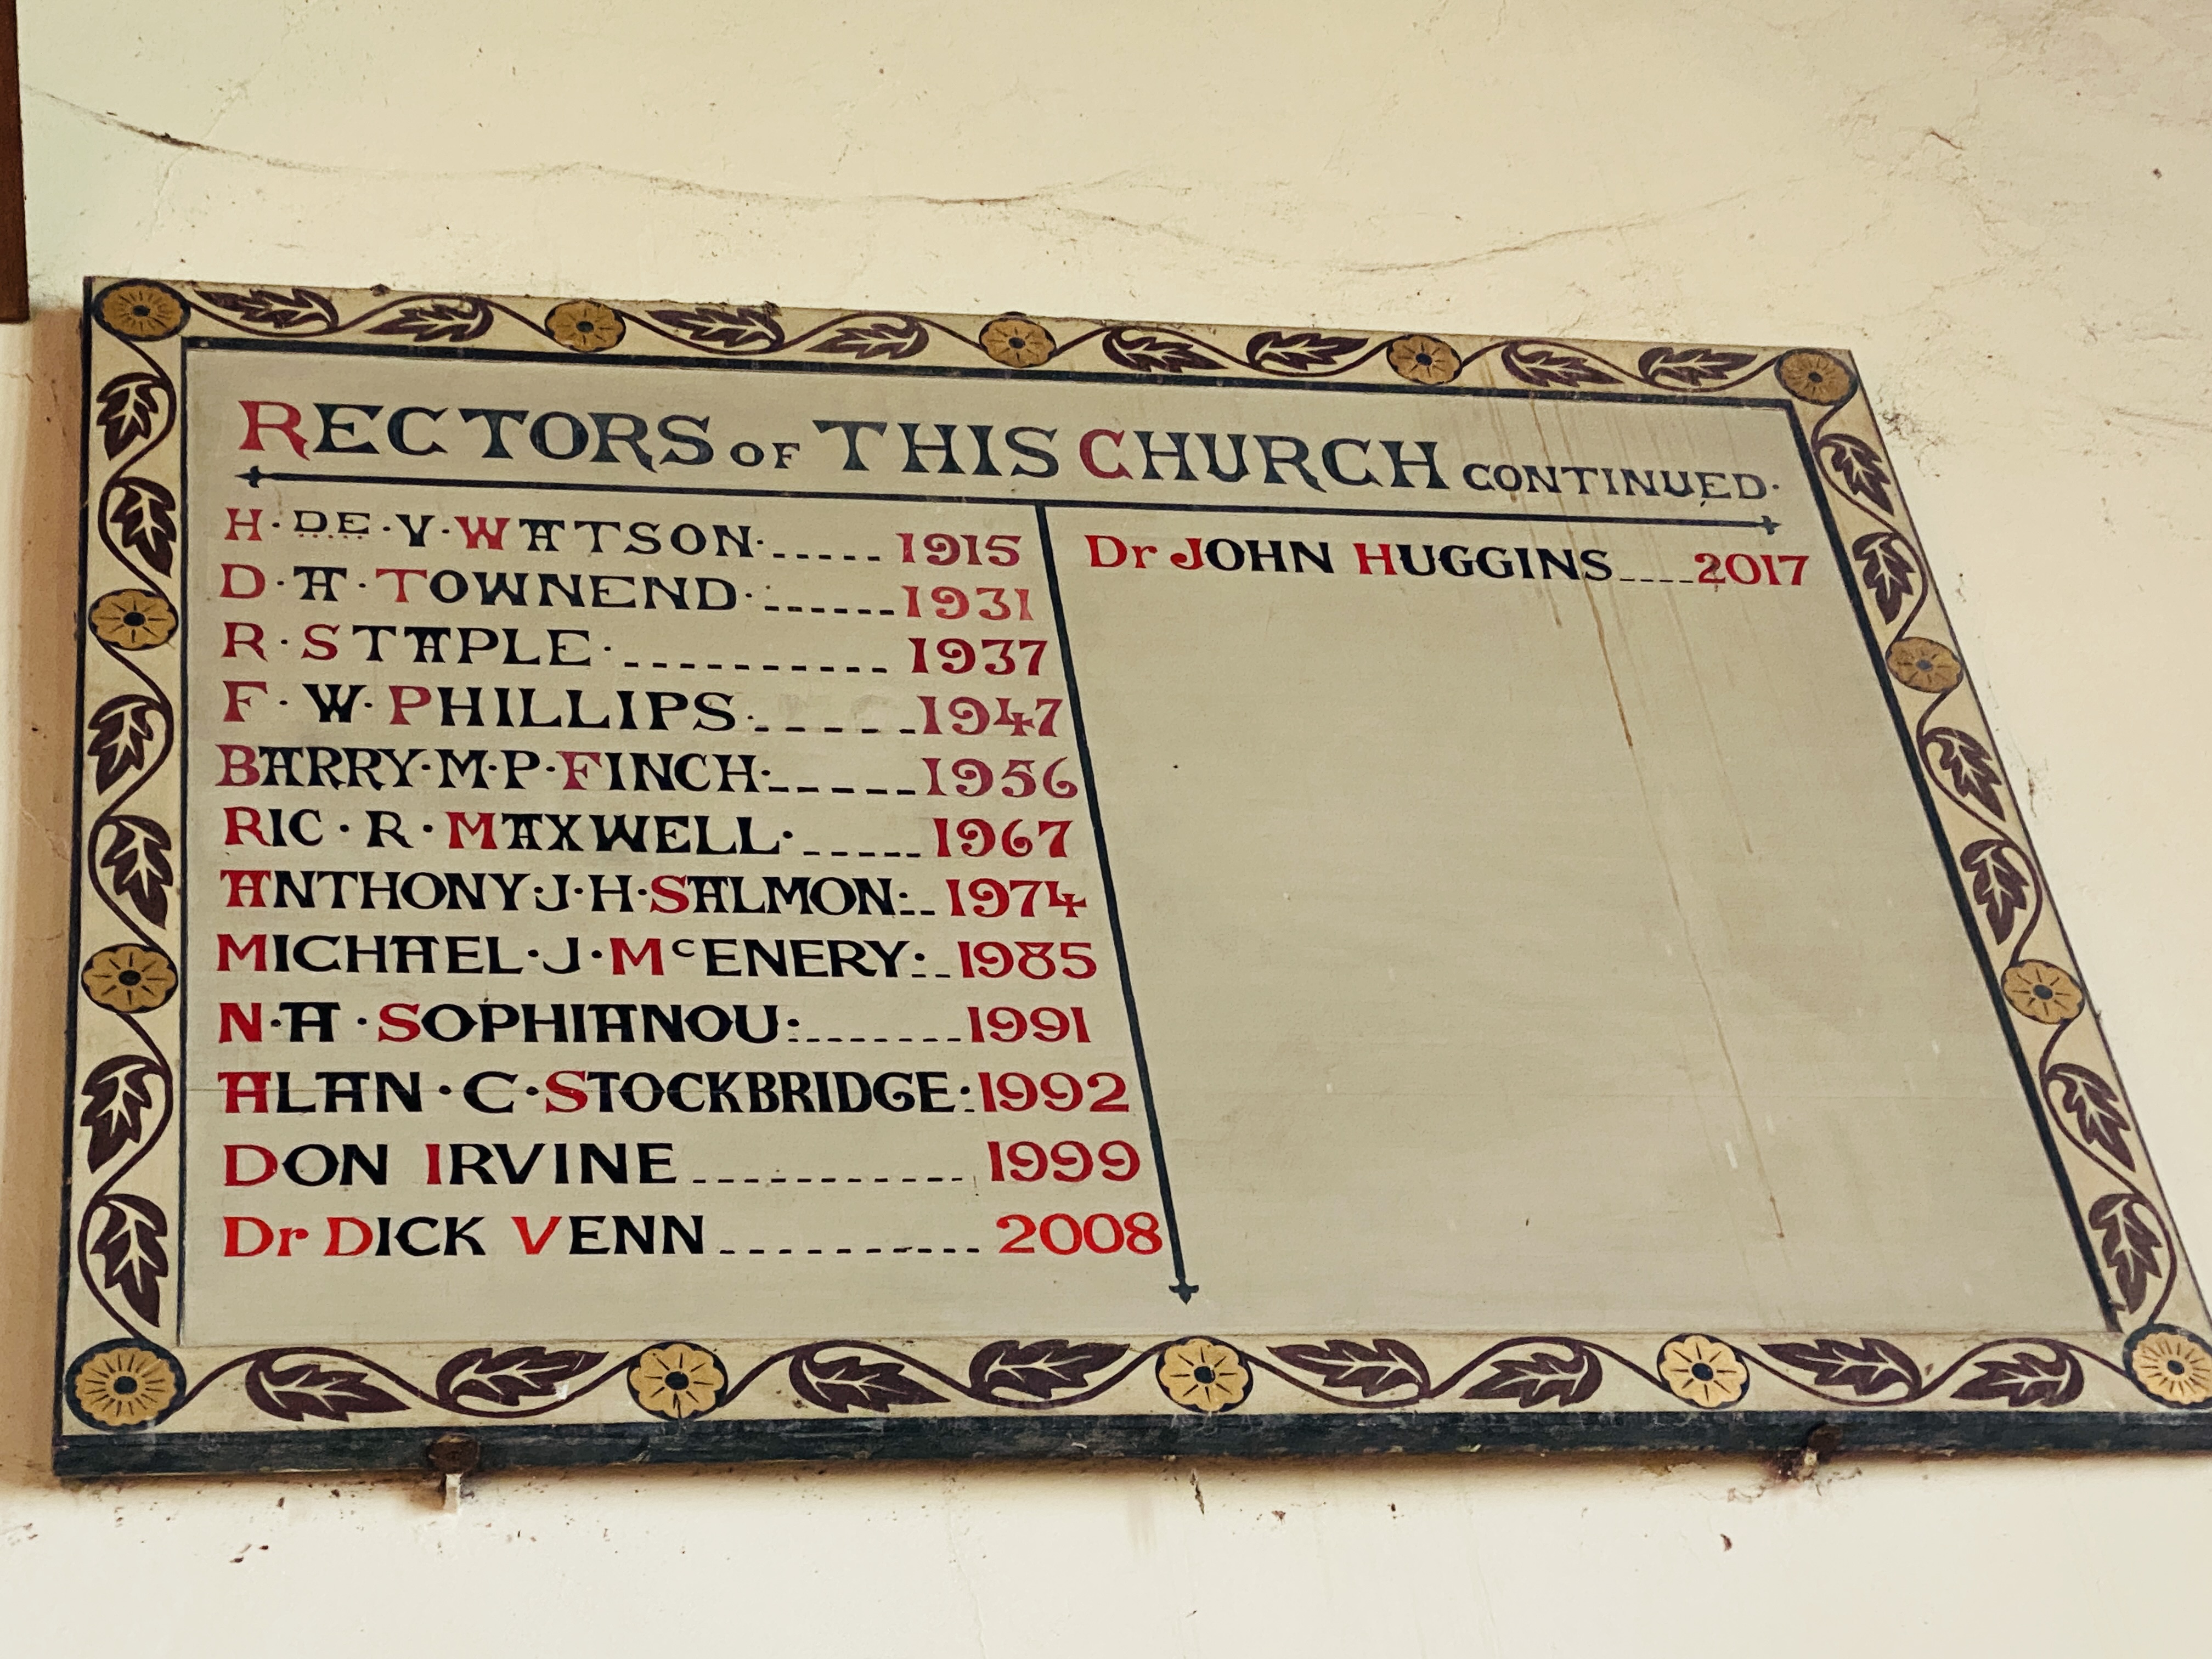 RECTORS OF THIS CHURCH CONTINUED.
H. DE. V. WATSON. ..... 1915
D. A. TOWNEND. ...... 1931
R. STAPLE. ........... 1937
F. W. PHILLIPS. ...... 1947
BARRY. M. P. FINCH. ...... 1956
RIC. R. MAXWELL. ..... 1967
ANTHONY. J. H. SALMON. .. 1974
MICHAEL. J. McENERY. .. 1985
N. A. SOPHIANOU. ........ 1991
ALAN. C. STOCKBRIDGE. 1992
DON IRVINE ............ 1999
Dr DICK VENN ........... 2008
Dr JOHN HUGGINS .... 2017